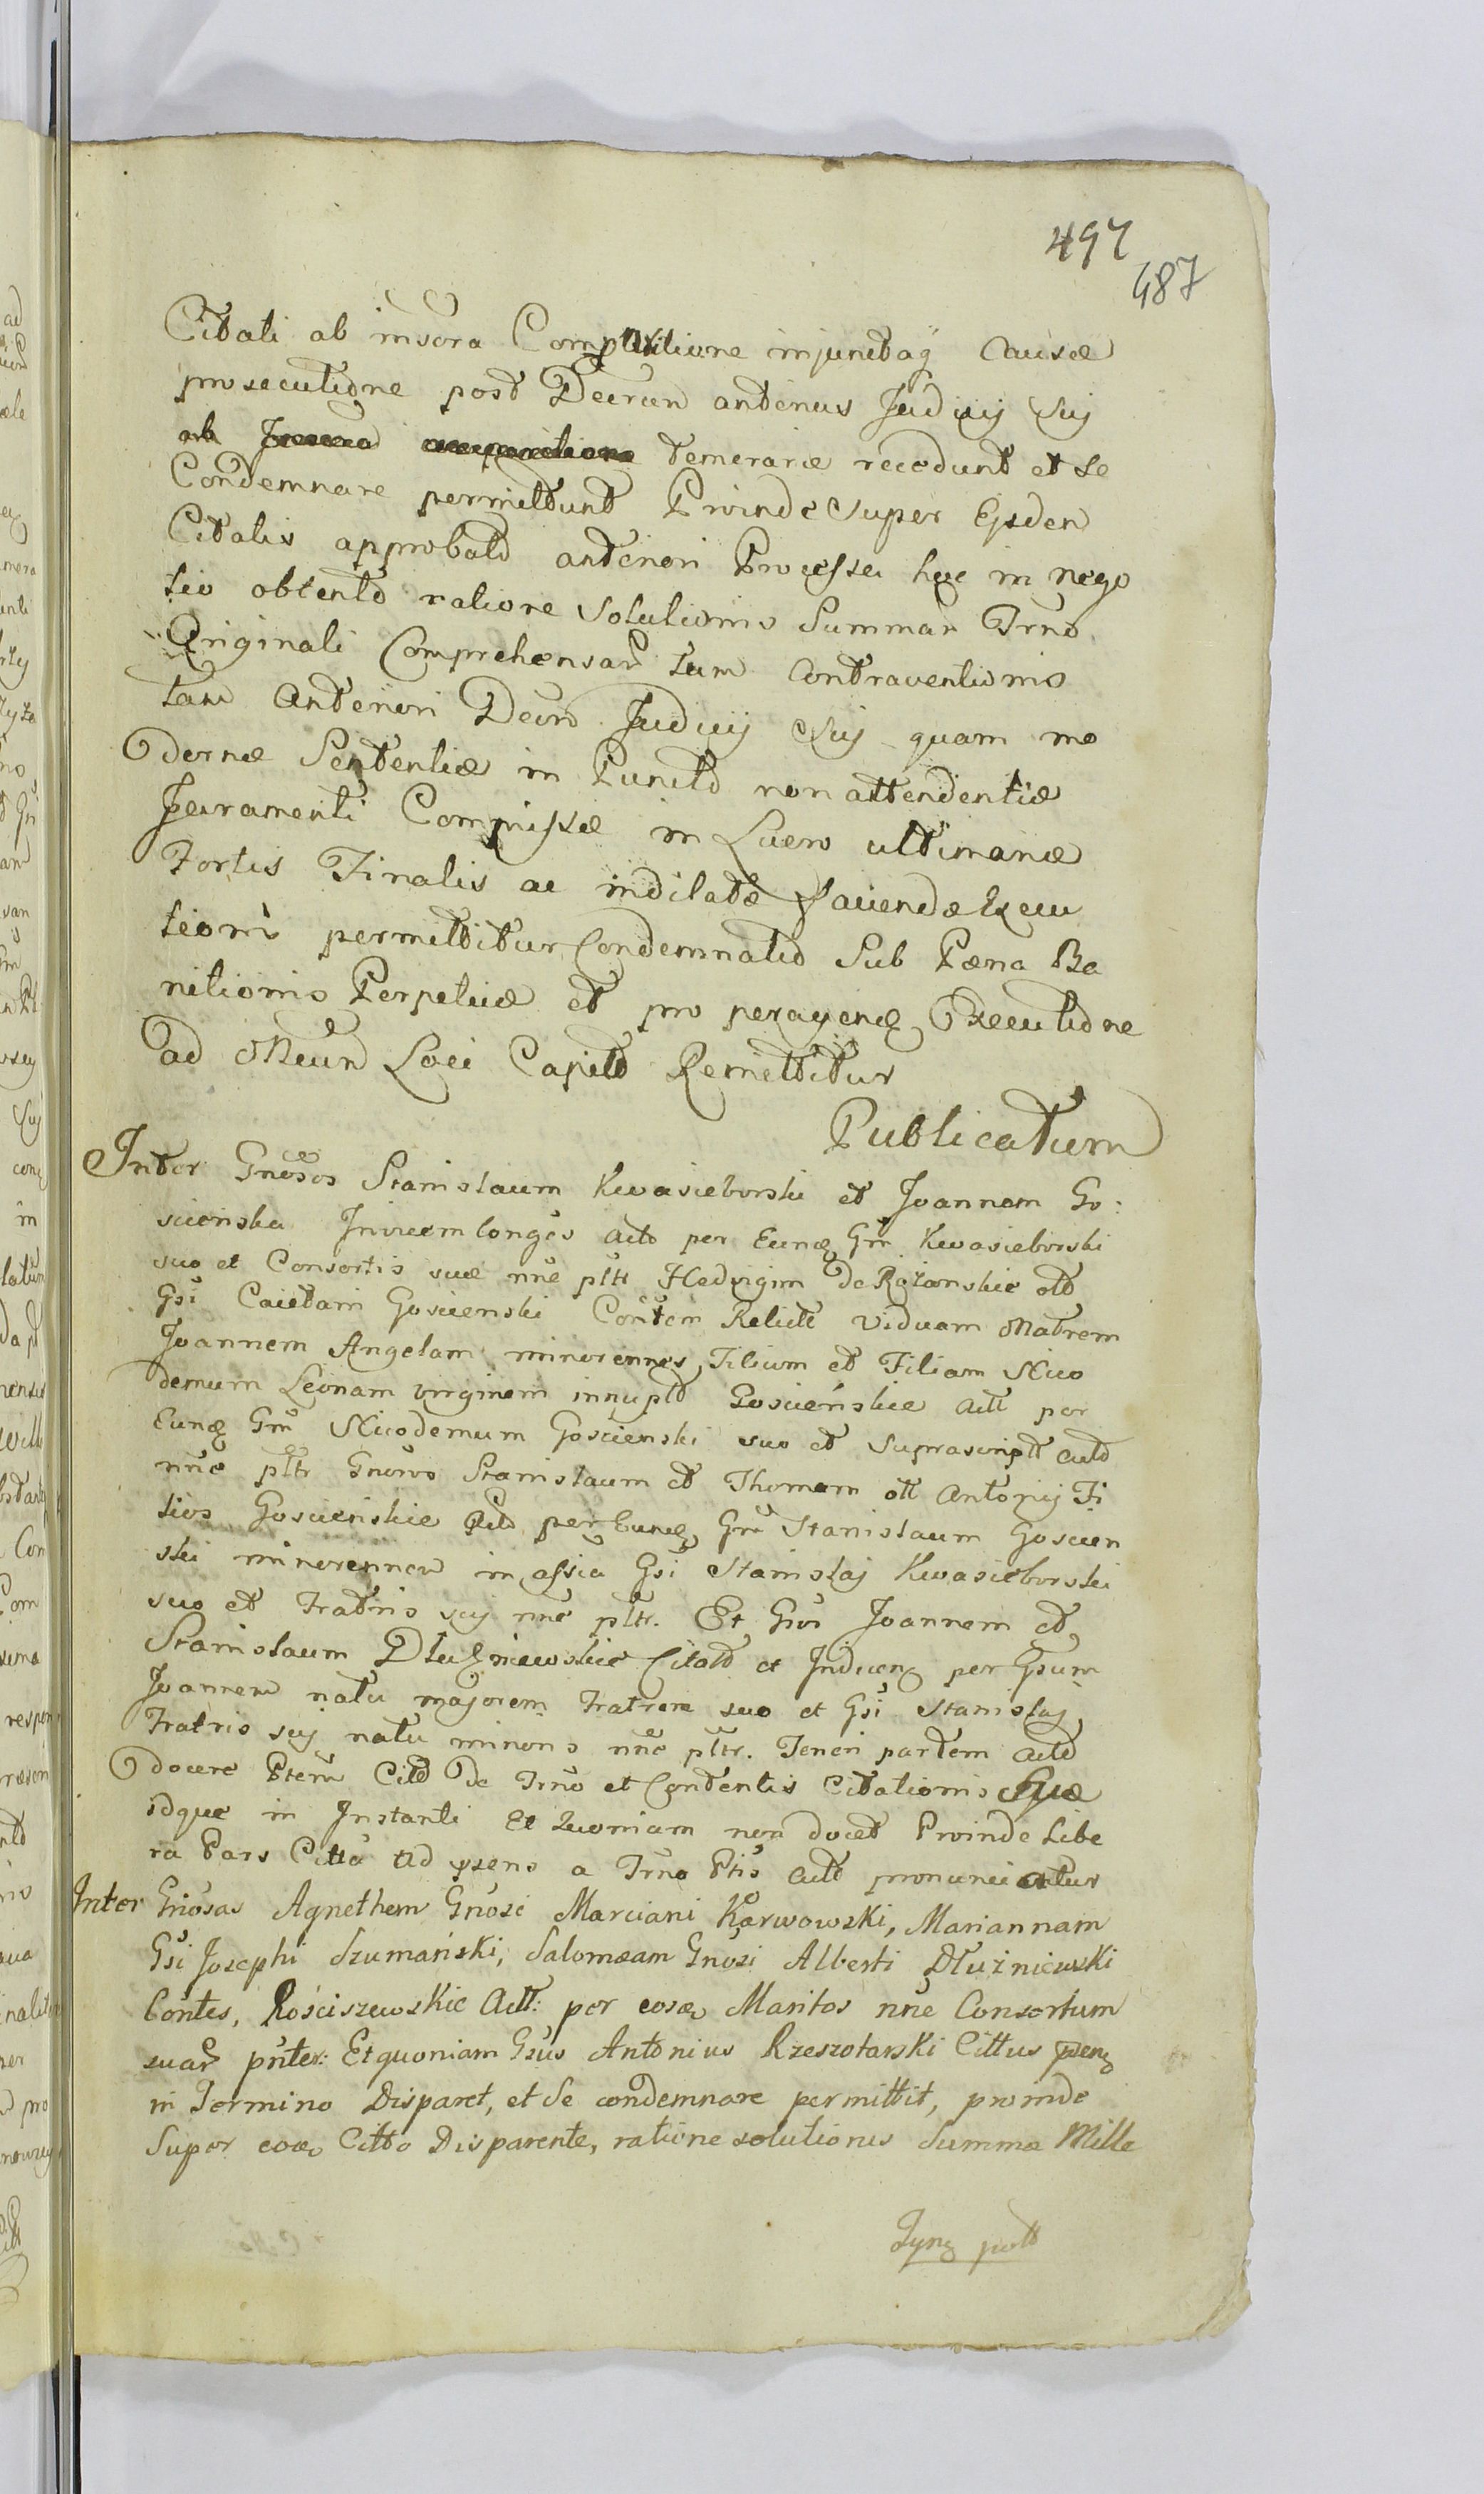 497
487
Citati ab insora Comparitione injunctaq̃ Causæ
prosecutione post Decrum anterius Judicij Sui
ab temerarie recedunt et se
Condemnare permittunt Proinde Super Ijsdem
Citatis approbato anteriori Processu hoc in nego
tio obtento ratione Solutionis Summar Trno
Originali Comprehensar tum Contraventionis
tam Anteriori Decro Judicij Sui quam mo
dernæ Sententiæ in Puncto non attendentiæ
Juramenti Commissæ in Lucro ultimariæ
Fortis Finalis ac indilatæ Faciendæ Execu
tioni permittitur Condemnatio Sub Pœna Ba
nitionis Perpetuæ et pro peragenda Executione
ad Offeum Loci Capitt Remittitur
Publicatum
Inter Gnosos Stanislaum Kwasieborski et Joannem Go:
scienska Invicem Conges Acto per Eunq̃ Gm Kwasieborski
suo et Consortis suæ nne pltr Hedvigim de Rożanskie olt
Gsi Caietani Goscienski Contem Relictt Viduam Matrem
Joannem Angelam minorennes Filium et Filiam Nico
demum Leonam virginem innuptt Gościeńskie Actt per
Eunq̃ Gm Nicodemum Goscienski suo et Suprascriptt Actt
nne pltr Gnoros Stanislaum et Thomam olt Antonij Fi
lios Gościeńskie Actt per Eunq̃ Gm Stanislaum Goscien
ski minorennem in assia Gsi Stanislaj Kwasieborski
suo et Fratris sui nne pltr. Et Gros Joannem et
Stanislaum Dłużniewskie Citatt et Inducen per Gsum
Joannem natu majorem Fratrem suo et Gsi Stanislaj
Fratris sui natu minoris nne pltr. Teneri partem Actt
docere Ptem Citt de Trno et Contentis Citationis Suæ
idque in Instanti Et Quoniam non docet Proinde Libe
ra Pars Citta ad psens a Trno Ptis Actt pronunciatur
Inter Gnosas Agnethem Gnosi Marciani Karwowski, Mariannam
Gsi Josephi Szumański, Salomæam Gnosi Alberti Dłużniewski
Contes, Rościszewskie Actt: per eosd Maritos nne Consortum
suar pnter: Et quoniam Gsus Antonius Rzeszotarski Cittus psens
in Termino Disparet, et Se condemnare permittit, proinde
Super eod Citto Disparente, ratione solutionis Summæ Mille